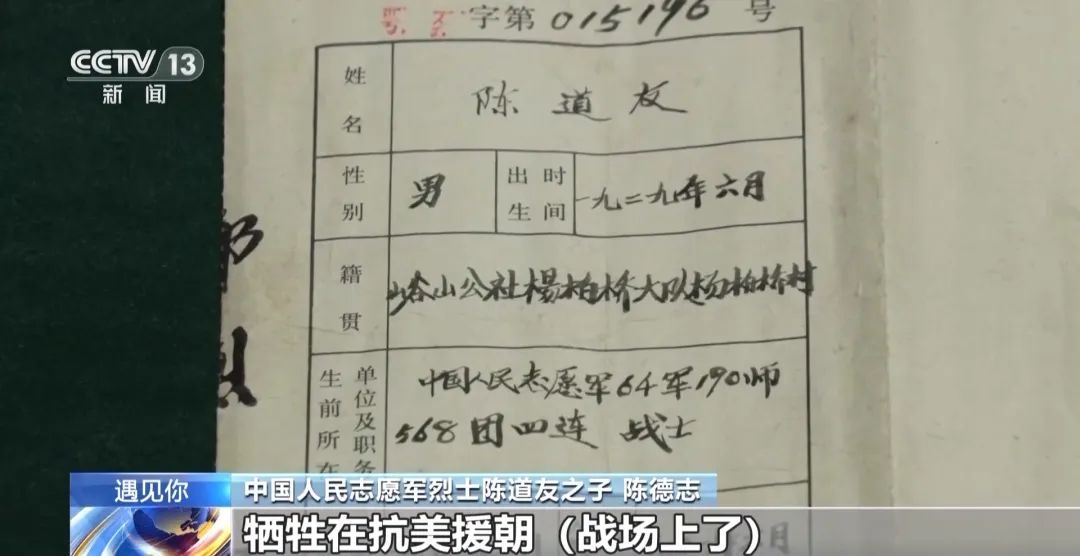 CCTV 13
新闻
字第015196号
姓名
陈道友
性别
男
出生
时间
一九二九年六月
籍贯
峪山公社杨柏桥大队杨柏桥村
生前所在
单位及职务
中国人民志愿军64军190师
568团四连 战士
烈
月
遇见你
中国人民志愿军烈士陈道友之子 陈德志
牺牲在抗美援朝（战场上了）